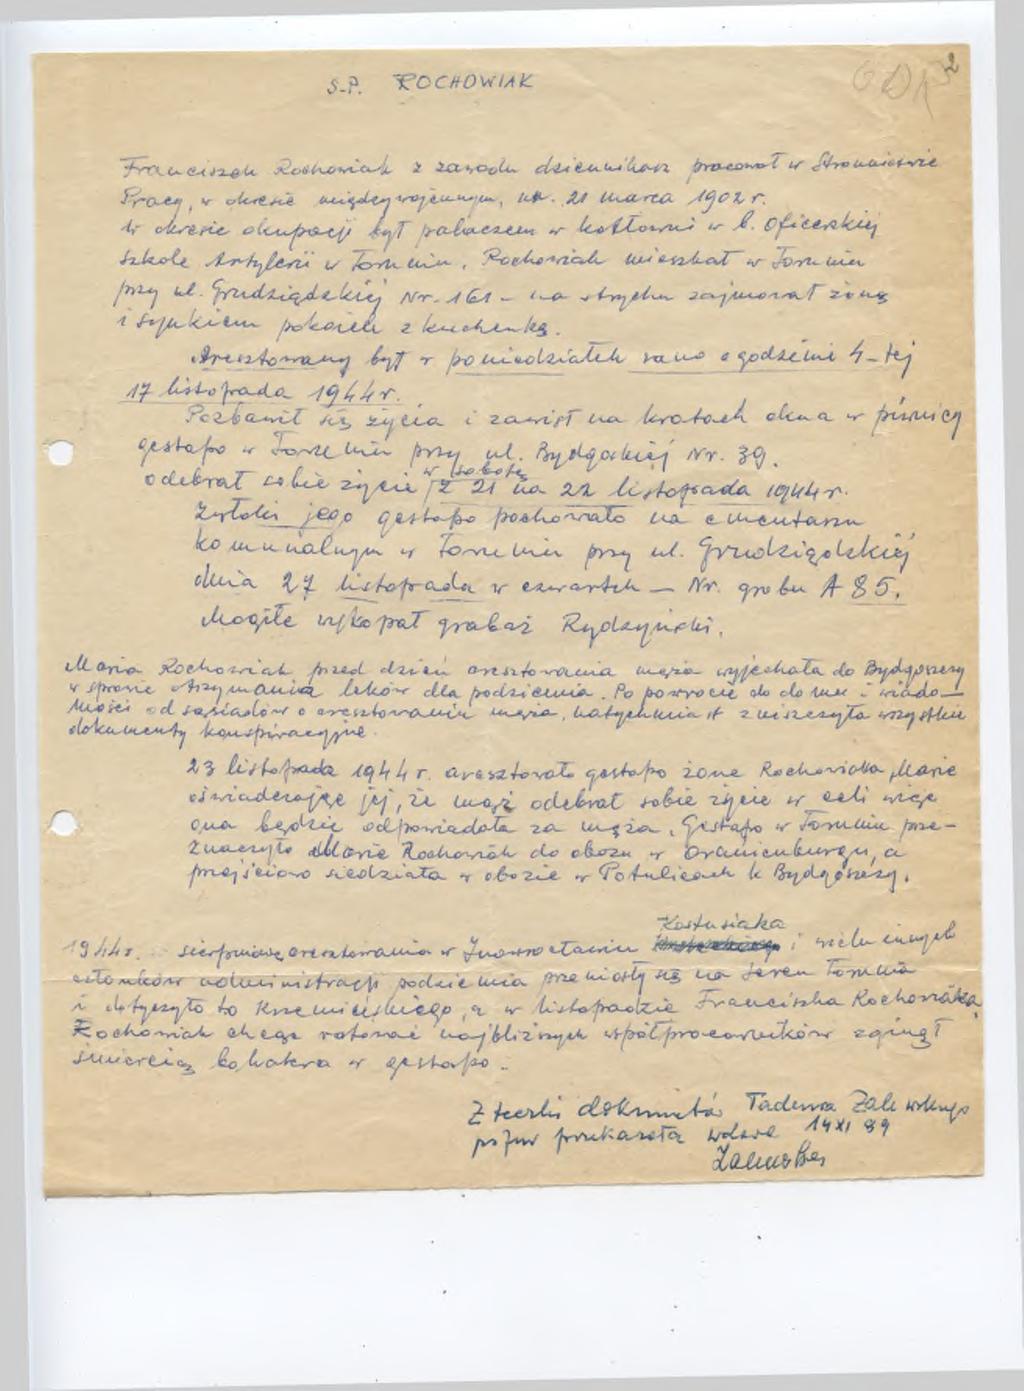 2
Ś.P. ROCHOWIAK
Franciszek Rochowiak z zawodu dziennikarz pracował w Stronnictwie
Pracy, w okresie międzywojennym, ur. 21 marca 1902 r.
W okresie okupacji był palaczem w kotłowni w b. Oficerskiej
Szkole Artylerii w Toruniu. Rochowiak mieszkał w Toruniu
przy ul. Grudziądzkiej Nr. 161 – na strychu zajmował z żoną
i synkiem pokoik z kuchenką.
Aresztowany był w poniedziałek rano o godzinie 4-tej
17 listopada 1944 r.
Pozbawił się życia i zawisł na kratach okna w piwnicy
gestapo w Toruniu przy ul. Bydgoskiej Nr. 39.
w sobotę
odebrał sobie życie z 21 na 22 listopada 1944 r.
Zwłoki jego gestapo pochowało na cmentarzu
komunalnym w Toruniu przy ul. Grudziądzkiej
dnia 27 listopada w czwartek – Nr. grobu A 85.
Mogiłę wykopał grabaż Rydzyński.
Maria Rochowiak przed dzień aresztowania męża wyjechała do Bydgoszczy
w sprawie otrzymania leków dla podziemia. Po powrocie do domu i wiado-
mości od sąsiadów o aresztowaniu męża, natychmiast zniszczyła wszystkie
dokumenty konspiracyjne.
23 listopada 1944 r. aresztowało gestapo żonę Rochowiaka Marię
oświadczając jej, że mąż odebrał sobie życie w celi więc
ona będzie odpowiadała za męża. Gestapo w Toruniu prze-
znaczyło Marię Rochowiak do obozu w Oranienburgu, a
przejściowo siedziała w obozie w Potulicach k Bydgoszczy.
Kostusiaka
1944 r. sierpniowe aresztowania w Inowrocławiu i wielu innych
członków administracji podziemia przeniosły się na teren Torunia
i dotyczyło to Krzemieńskiego, a w listopadzie Franciszka Rochowiaka,
Rochowiak chcąc ratować najbliższych współpracowników zginął
śmiercią bohatera w gestapo.
Z teczki dokumentów Tadeusza Zalewskiego
przekazała wdowa 14 XI 89